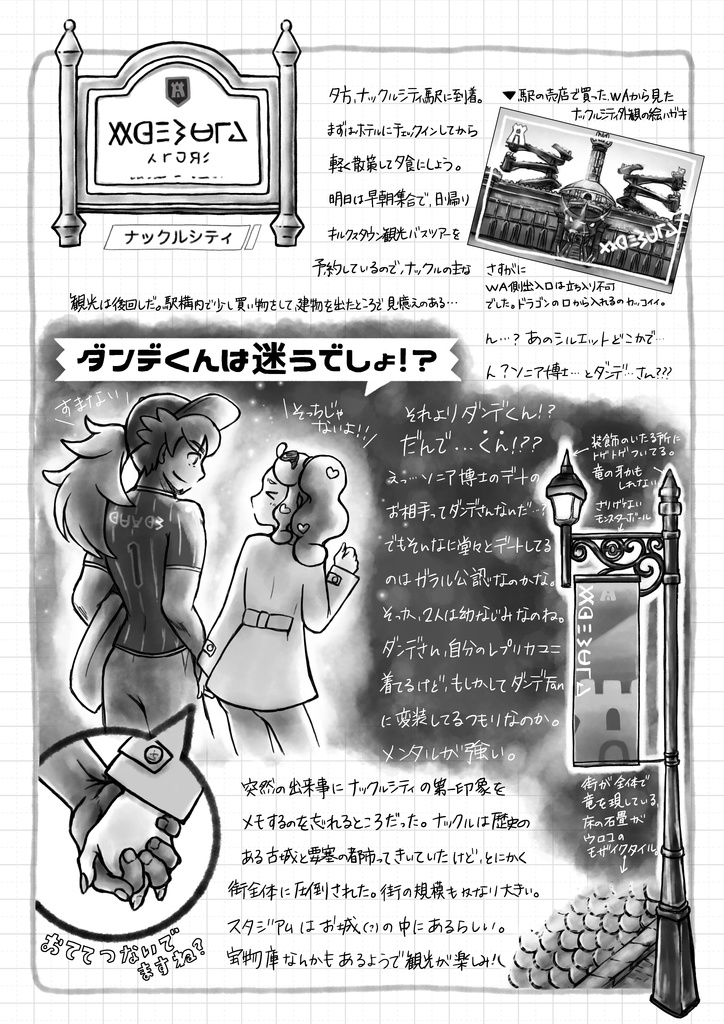 ナックルシティ
夕方、ナックルシティ駅に到着。
まずはホテルにチェックインしてから
軽く散策して夕食にしよう。
明日は早朝集合で、日帰り
キルクスタウン観光バスツアーを
予約しているので、ナックルの主な
観光は後回しだ。駅構内で少し買い物をして、建物を出たところで見憶えのある…
▼駅の売店で買った、WAから見た
ナックルシティ外観の絵ハガキ
さすがに
WA側出入口は立ち入り不可
でした。ドラゴンの口から入れるのカッコイイ。
ん…？あのシルエットどこかで…
ん？ソニア博士…とダンデ…さん???
ダンデくんは迷うでしょ!?
すまない！
そっちじゃ
ないよ!!
それよりダンデくん!?
だんで…くん!??
えっ…ソニア博士のデートの
お相手ってダンデさんなんだ…?
でもそんなに堂々とデートしてる
のはガラル公認なのかな。
そっか、2人は幼なじみなのね。
ダンデさん、自分のレプリカユニ
着てるけど、もしかしてダンデFan
に変装してるつもりなのか。
メンタルが強い。
装飾のいたる所に
トゲトゲついてる。
竜の牙かも
しれない
さりげない
モンスターボール
街が全体で
竜を現している。
床の石畳が
ウロコの
モザイクタイル。
突然の出来事にナックルシティの第一印象を
メモするのを忘れるところだった。ナックルは歴史の
ある古城と要塞の都市ってきいていたけど、とにかく
街全体に圧倒された。街の規模もかなり大きい。
スタジアムはお城(?)の中にあるらしい。
宝物庫なんかもあるようで観光が楽しみ!!
おててつないで
ますね?